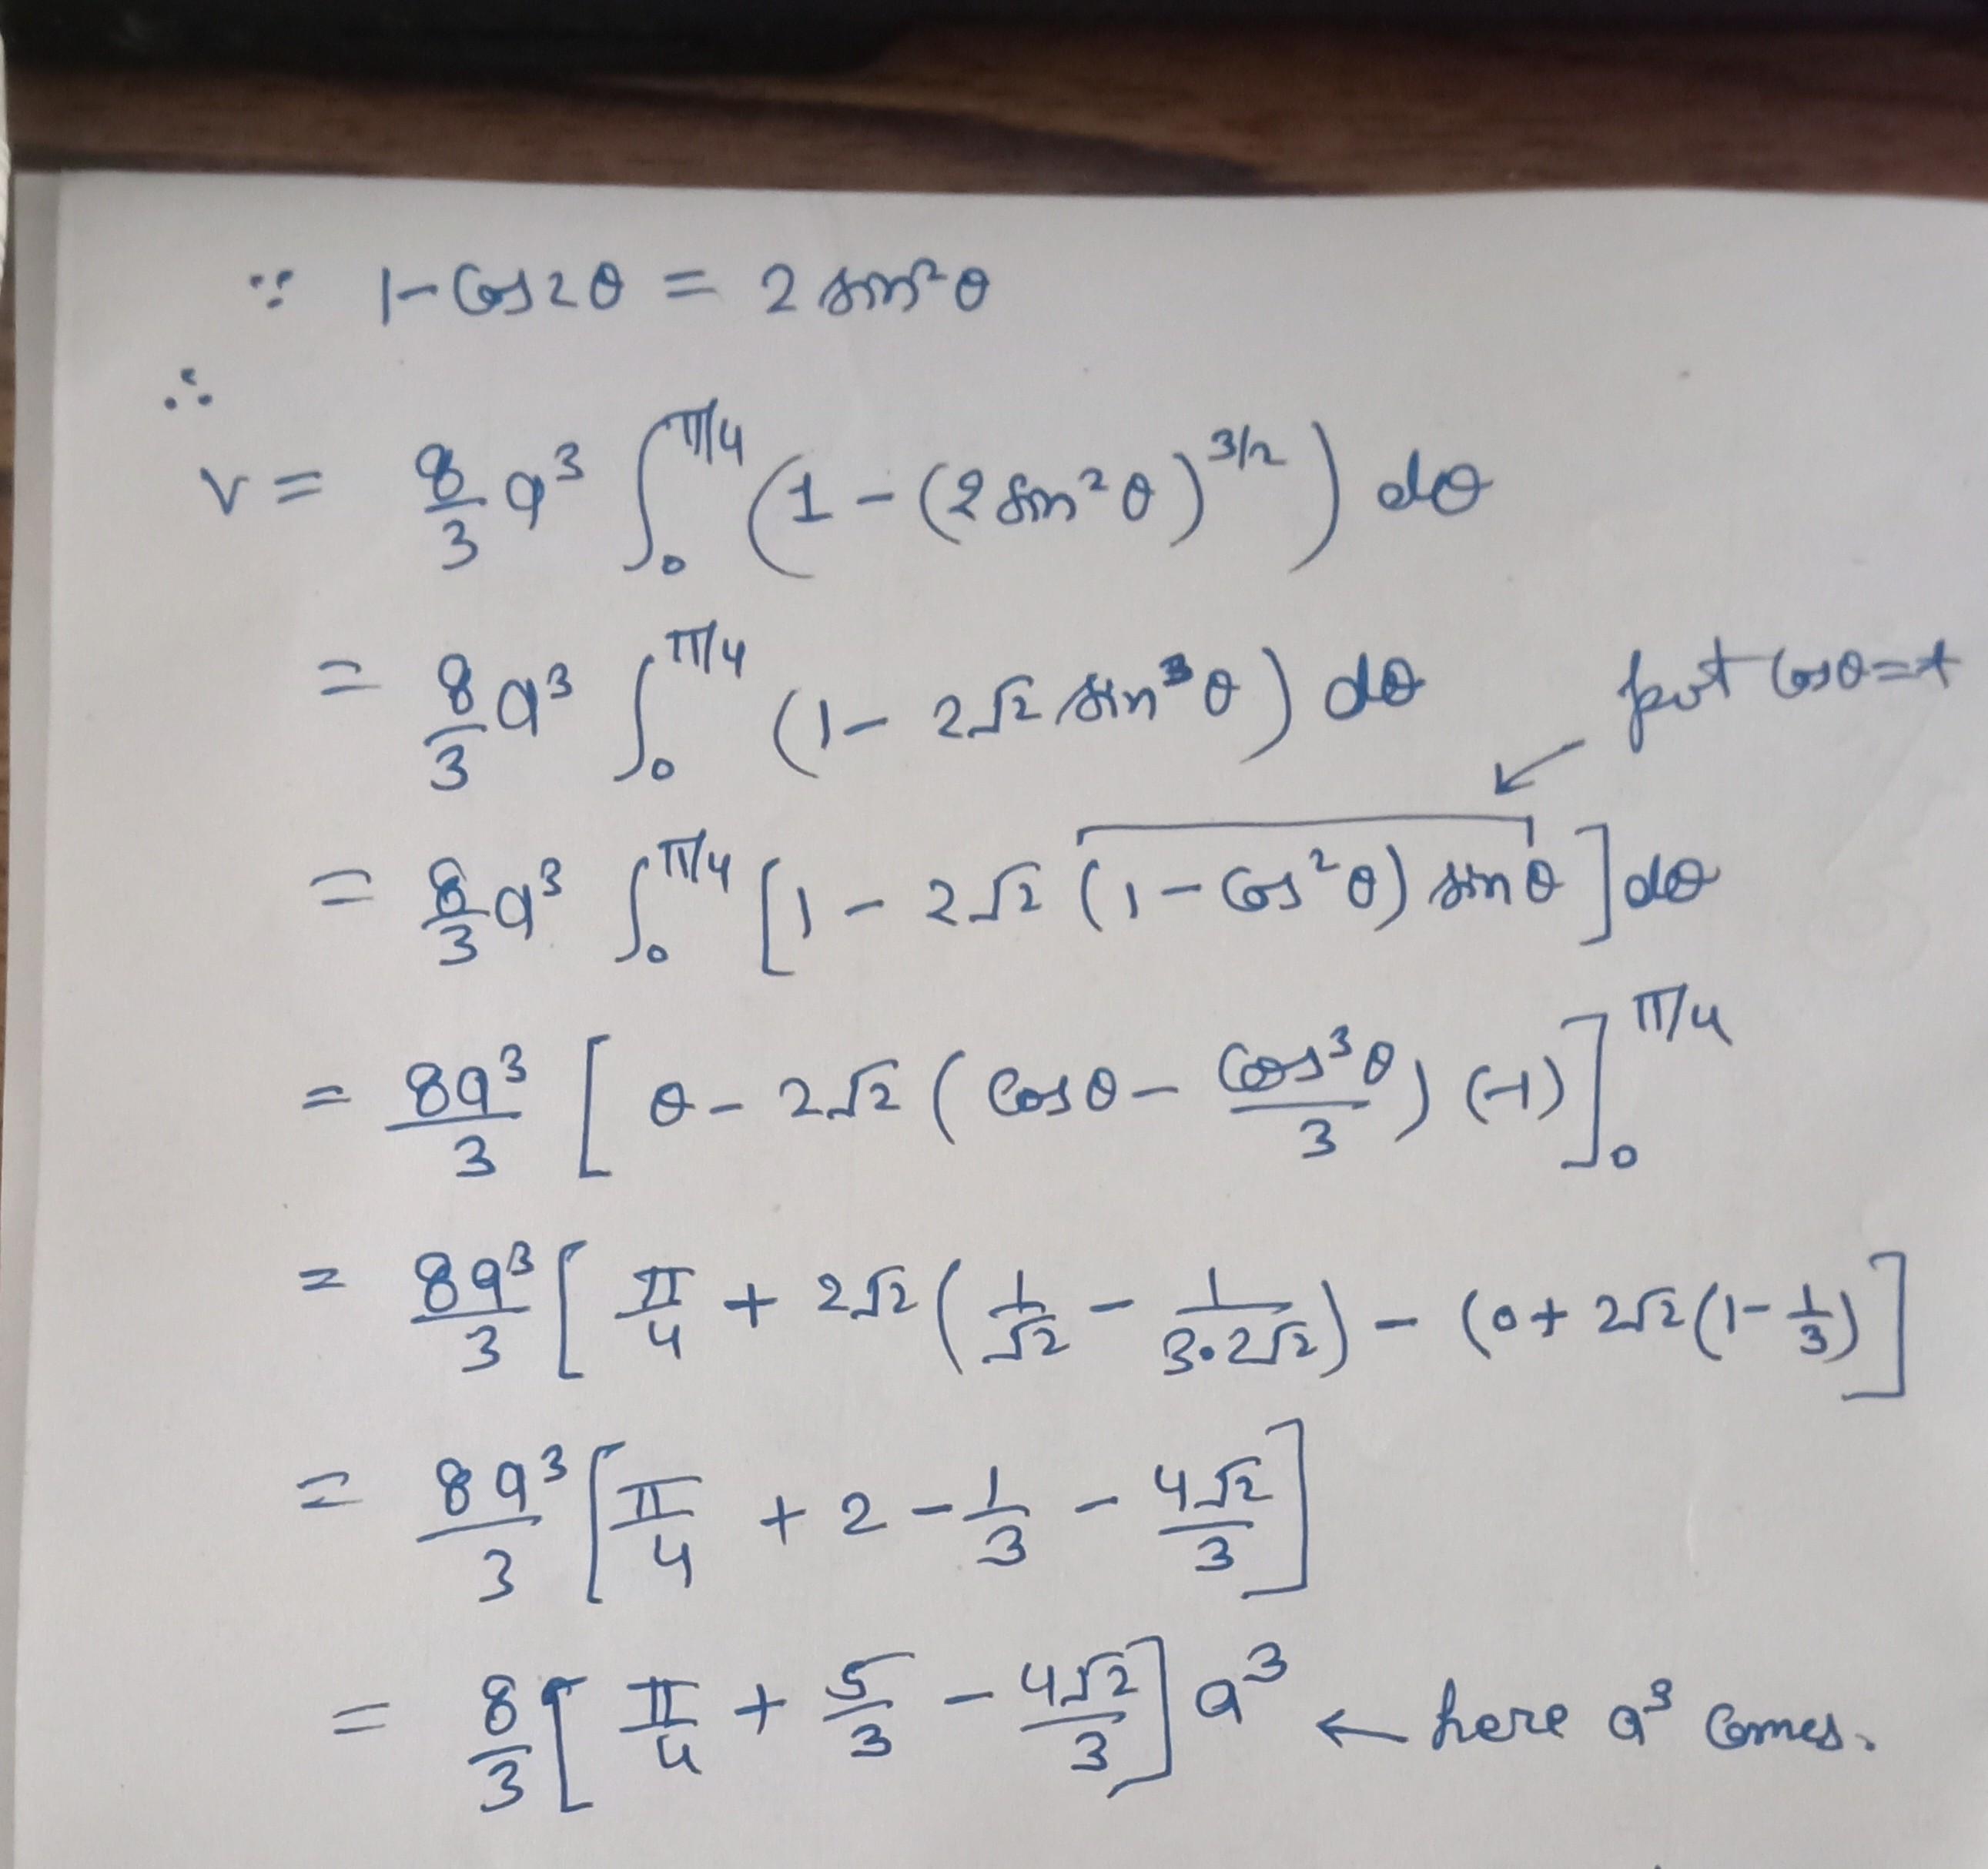 ∵ 1 - Cos2θ = 2 sin²θ
∴
V = 8/3 a³ ∫₀^{π/4} (1 - (2 sin²θ)^{3/2}) dθ
= 8/3 a³ ∫₀^{π/4} (1 - 2√2 sin³θ) dθ put Cosθ = t
= 8/3 a³ ∫₀^{π/4} [1 - 2√2 (1 - Cos²θ) sinθ] dθ
= 8a³/3 [θ - 2√2 (Cosθ - Cos³θ/3) (-1)]₀^{π/4}
= 8a³/3 [π/4 + 2√2 (1/√2 - 1/(3·2√2)) - (0 + 2√2 (1 - 1/3)]
= 8a³/3 [π/4 + 2 - 1/3 - 4√2/3]
= 8/3 [π/4 + 5/3 - 4√2/3] a³ ← here a³ Comes.